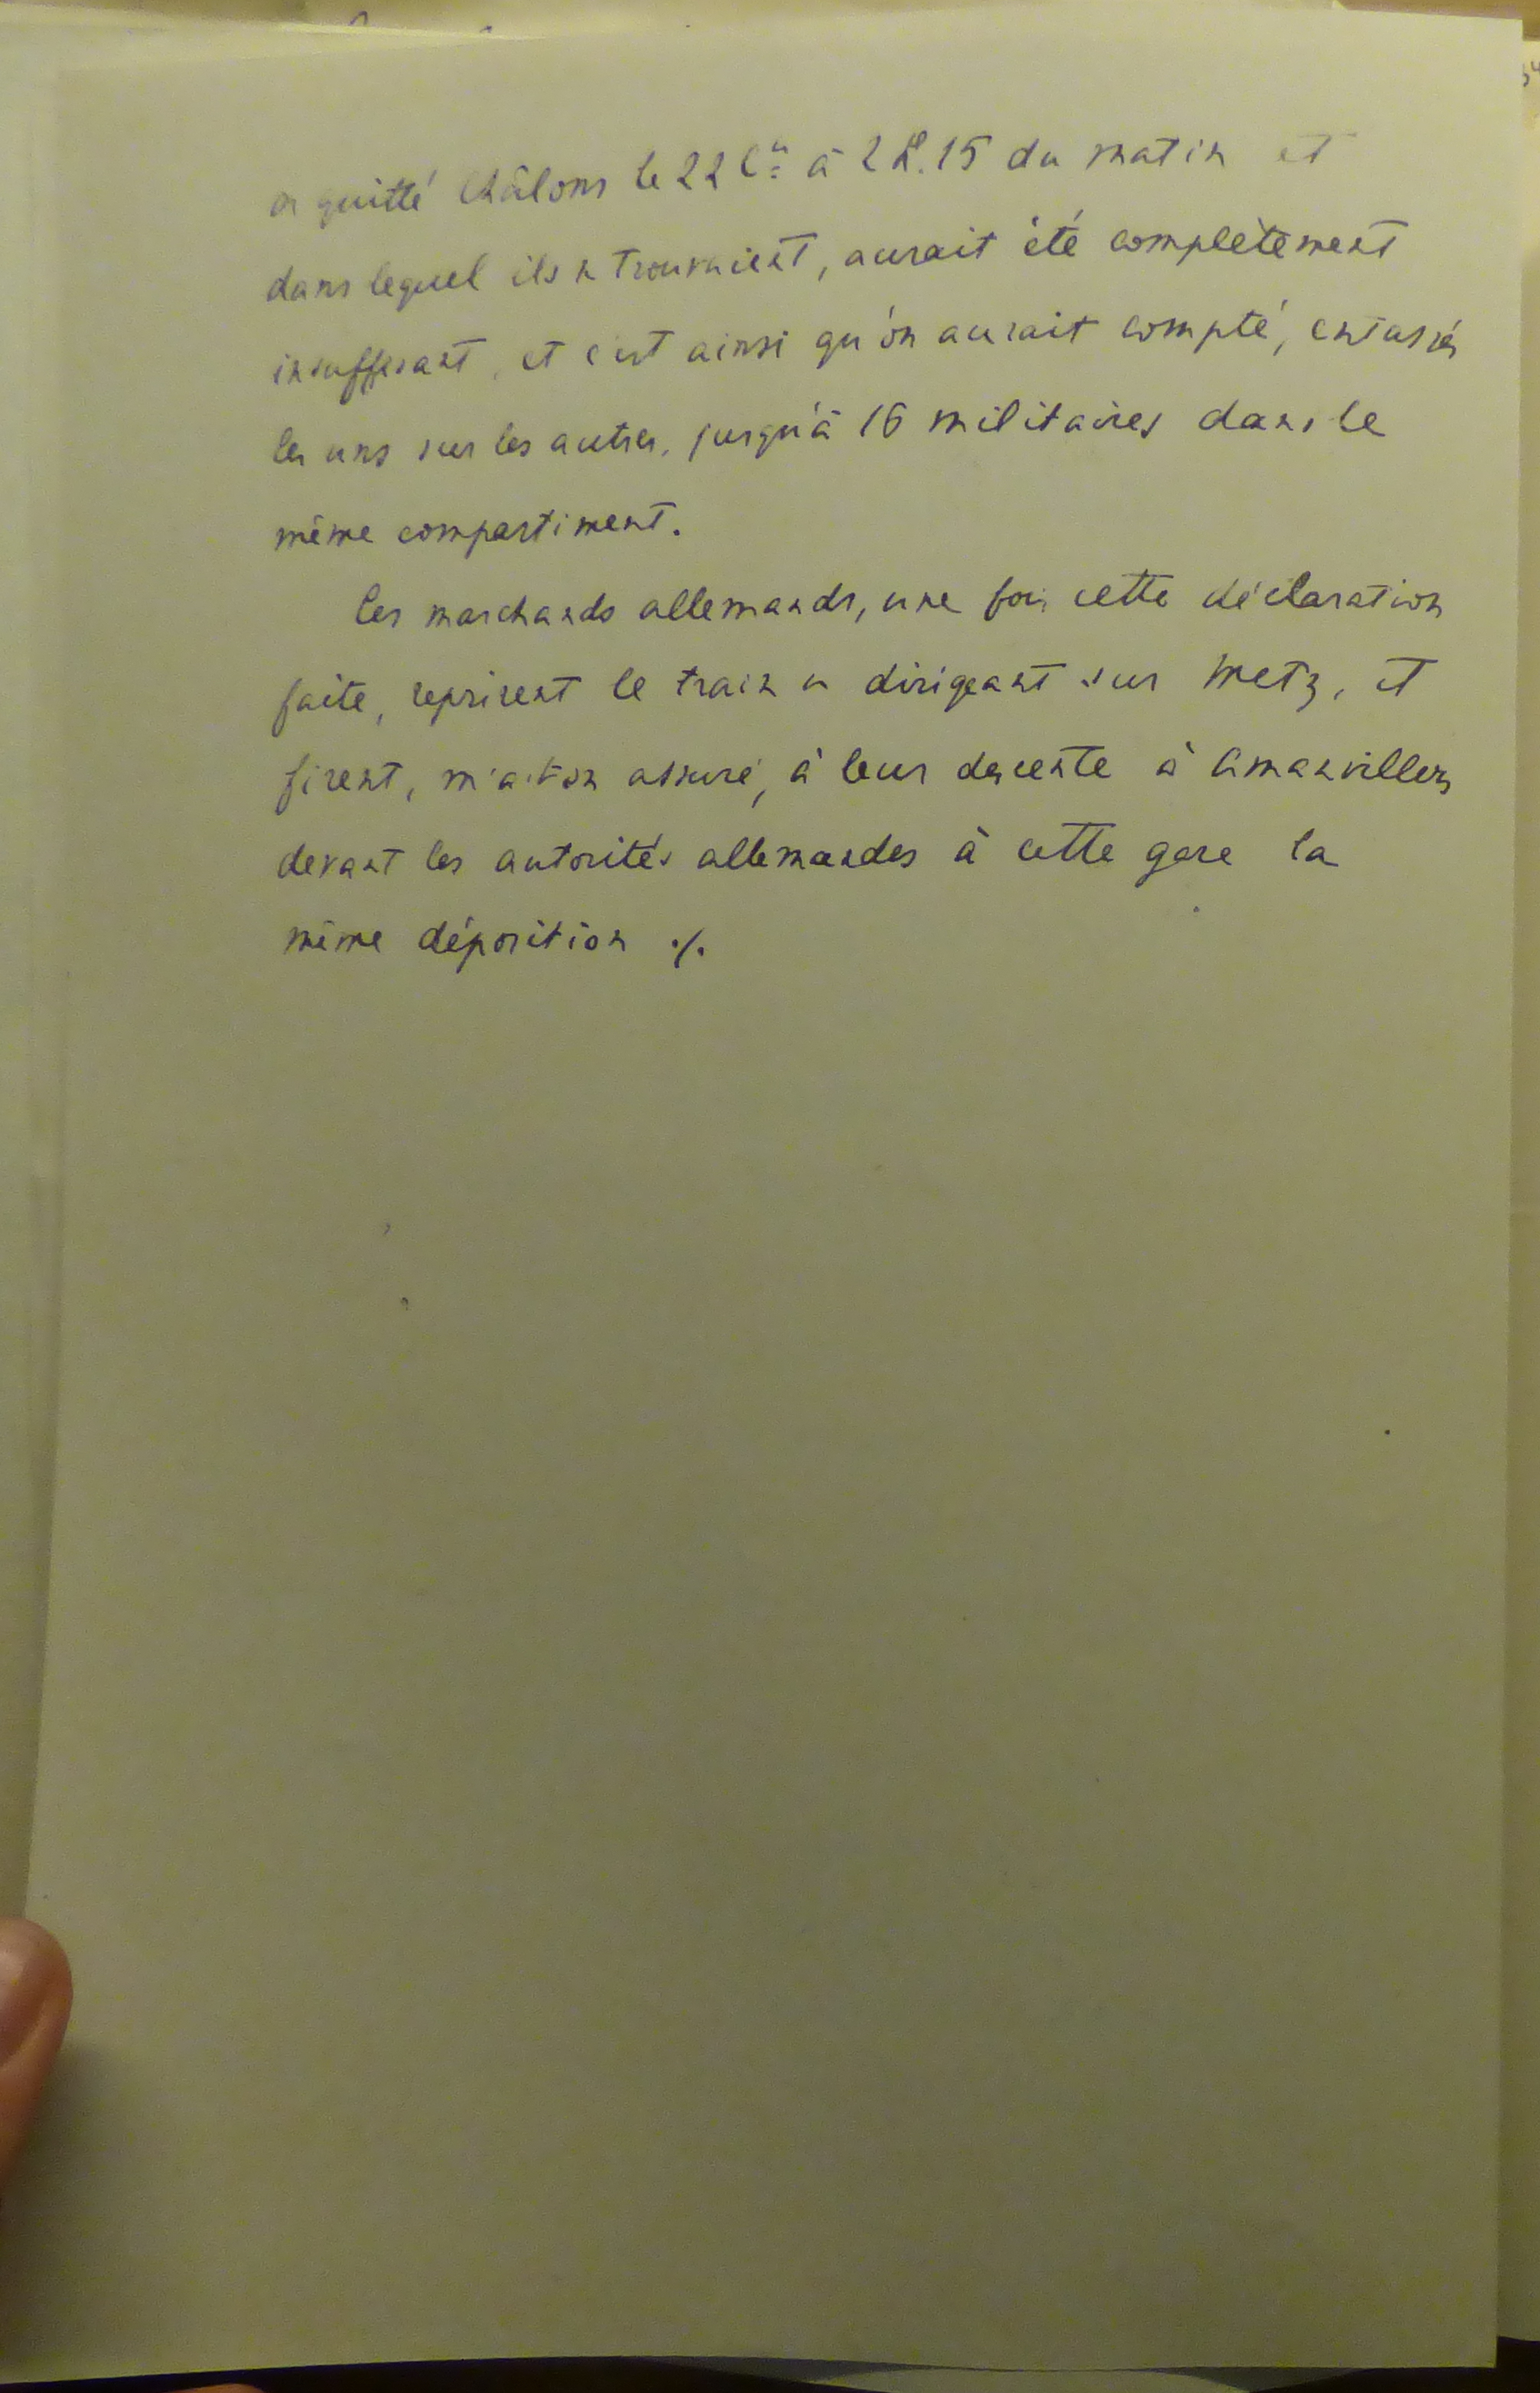 a quitté Châlons le 22 Ct à 2 h. 15 du matin et
dans lequel ils se trouvaient, aurait été complètement
insuffisant, et c'est ainsi qu'on aurait compté, entassés
les uns sur les autres, jusqu'à 16 militaires dans le
même compartiment.
Les marchands allemands, une fois cette déclaration
faite, reprirent le train se dirigeant sur Metz, et
firent, m'a-t-on assuré, à leur descente à Amanvillers
devant les autorités allemandes à cette gare la
même déposition ./.